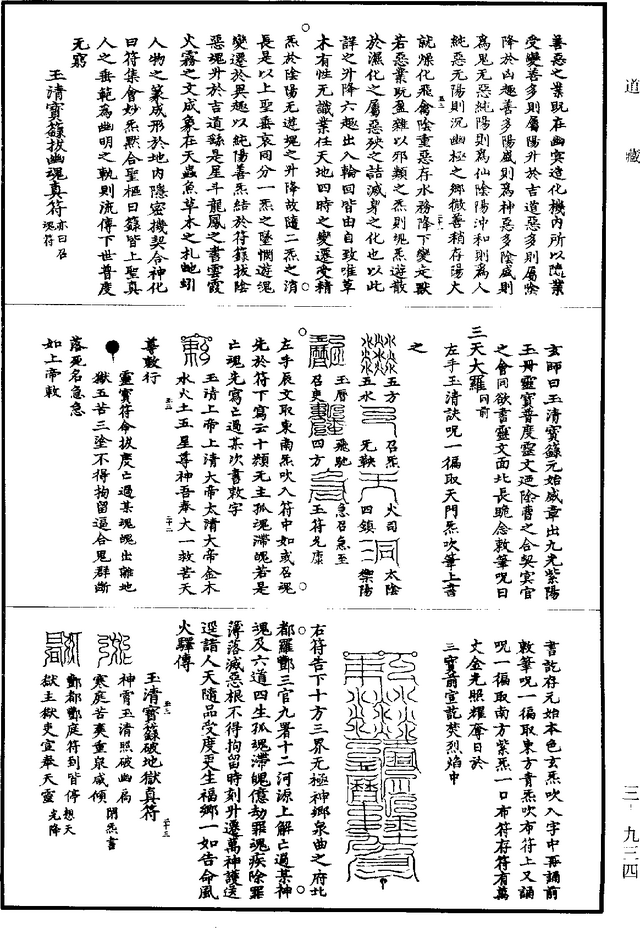 道藏
善惡之業既在幽冥造化機內所以隨業
受變善多則屬陽升於吉道惡多則屬陰
降於凶趣善多陽盛則爲神惡多陰盛則
爲鬼無惡純陽則爲仙陰陽沖和則爲人
純惡無陽則沉幽極之鄉微善稍存陽火
就燥化飛禽陰重惡存水務降下變走獸
若惡業既盈雜以邪類之炁則魂炁遊散
於濕化之屬惡殃之詰減身之化也以此
詳之升降六趣出入輪回皆由自致唯草
木有性无識業任天地四時之變遷受精
炁於陰陽无遊魂之升降故隨二炁之消
長是以上聖垂哀同分一炁之墜憫遊魂
變遷於異趣以純陽善炁結於符籙拔陰
惡魂升於吉道籙是星斗龍鳳之書雲霞
火霧之文成象在天蟲魚草木之札地蚓
人物之篆成形於地內隱密機契合神化
曰符集會妙炁默合聖樞曰籙皆上聖真
人之垂範爲幽明之軌則流傳下世普度
无窮
玉清寶籙拔幽魂真符亦曰召魂符
玄師曰玉清寶籙元始威章出九光紫陽
玉冊靈寶普度靈文廼陰曹之合契冥官
之會同欲書靈文面北長跪念敕筆呪曰
三天大羅同前
左手玉清訣呪一徧取天門炁吹筆上書
之
五方 召炁 火司 太陰
五水 无鞅 四鎮 樂陽
玉曆 飛馳 急召急至
召吏 四方 玉符元康
左手辰文取東南炁吹入符中如或召魂
先於符下寫云十類无主孤魂滯魄若是
亡魂先寫亡過某次書敕字
玉清上帝上清大帝太清大帝金木
水火土五星尊神吾奉太一救苦天
尊敕行
靈寶符命拔度亡過某魂魄出離地
獄五苦三塗不得拘留逼合鬼群斷
落死名急急
如上帝敕
書訖存元始本色玄炁吹入字中再誦前
敕筆呪一徧取東方青炁吹布符上又誦
呪一徧取南方紫炁一口布符存符有萬
丈金光照耀奪日於
三寶前宣訖焚烈焰中
右符告下十方三界无極神鄉泉曲之府北
都羅酆三官九署十二河源上解亡過某神
魂及六道四生孤魂滯魄億劫罪魂疾除罪
簿落滅惡根不得拘留時刻升遷萬神護送
逕詣人天隨品受度更生福鄉一如告命風
火驛傳
玉清寶籙破地獄真符
神霄玉清照破幽扃 閉炁書
寒庭苦爽重泉咸傾
酆都酆庭符到皆停 想天
獄主獄吏宣奉天靈 光降
三-九三四